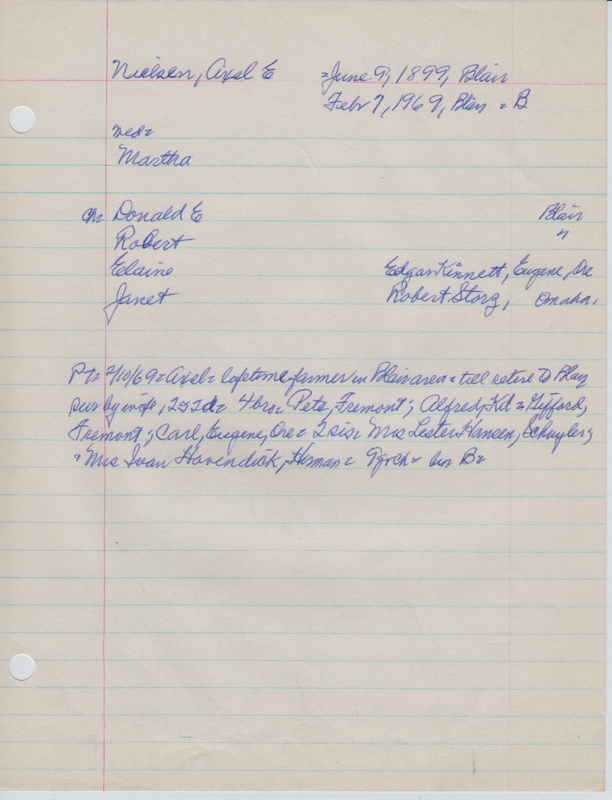 Nielsen, Axel E = June 9, 1899, Blair
Febr 7, 1969, Blair = B
med=
Martha
ch= Donald E Blair
Robert "
Elaine Edgar Kinnett, Eugene, Ore
Janet Robert Storz, Omaha,
Pt= 2/10/69 = Axel = lifetime farmer in Blair area = till retire to Blair
sur by wife, 2s 2d = 4 bro = Pete, Fremont; Alfred, Kd = Gifford,
Fremont; Carl, Eugene, Ore = 2 sis = Mrs Lester Hansen, Schuyler;
" Mrs Ivan Havendick, Herman = 9grch = bur B=